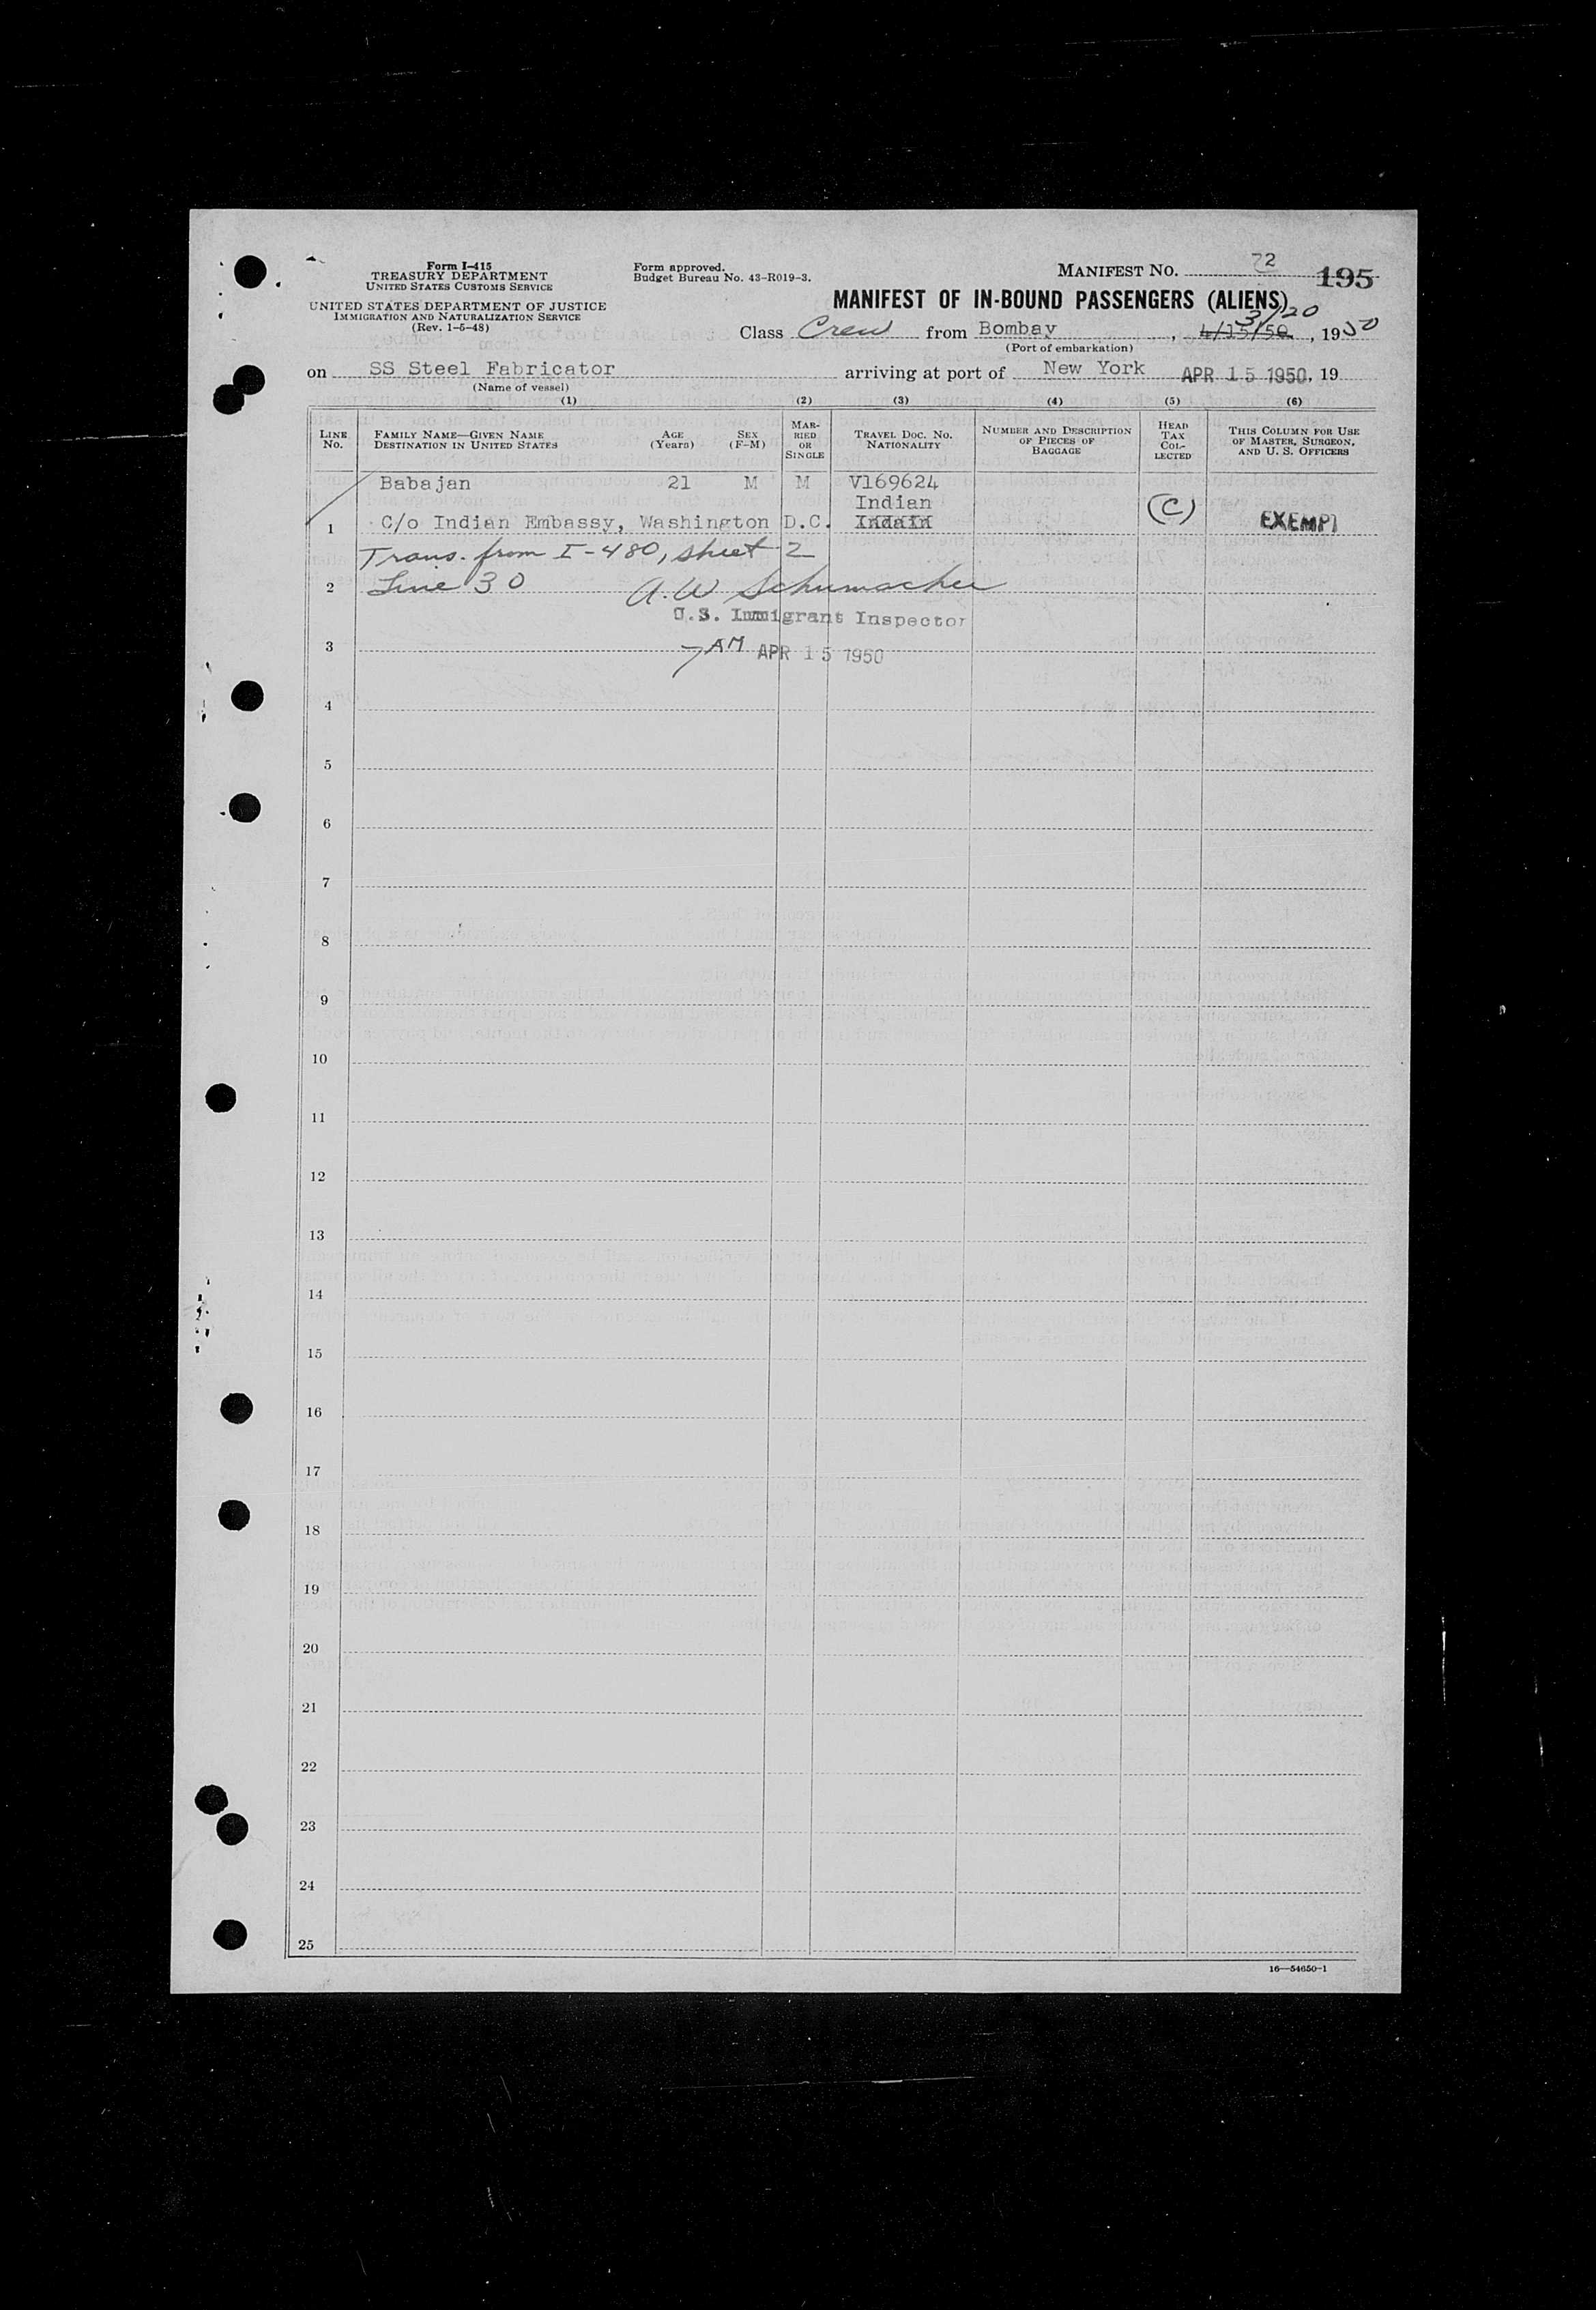 Form I-415
TREASURY DEPARTMENT
UNITED STATES CUSTOMS SERVICE
UNITED STATES DEPARTMENT OF JUSTICE
IMMIGRATION AND NATURALIZATION SERVICE
(Rev. 1-5-48)
Form approved.
Budget Bureau No. 43-R019-3.
MANIFEST NO. 72
195
MANIFEST OF IN-BOUND PASSENGERS (ALIENS)
3/20
Class Crew from Bombay, 4/15/50, 1950
(Port of embarkation)
on SS Steel Fabricator arriving at port of New York APR 15 1950, 19
(Name of vessel)
(1) (2) (3) (4) (5) (6)
LINE NO.
FAMILY NAME—GIVEN NAME
DESTINATION IN UNITED STATES
AGE
(Years)
SEX
(F-M)
MARRIED OR SINGLE
TRAVEL DOC. NO.
NATIONALITY
NUMBER AND DESCRIPTION
OF PIECES OF
BAGGAGE
HEAD
TAX
COL-
LECTED
THIS COLUMN FOR USE
OF MASTER, SURGEON,
AND U. S. OFFICERS
Babajan 21 M M V169624
Indian
1 C/o Indian Embassy, Washington D.C. (C) EXEMPT
Trans. from I-480, sheet 2
2 Line 30 A. W Schumacher
U.S. Immigrant Inspector
3 7 AM APR 15 1950
4
5
6
7
8
9
10
11
12
13
14
15
16
17
18
19
20
21
22
23
24
25
16—54650-1